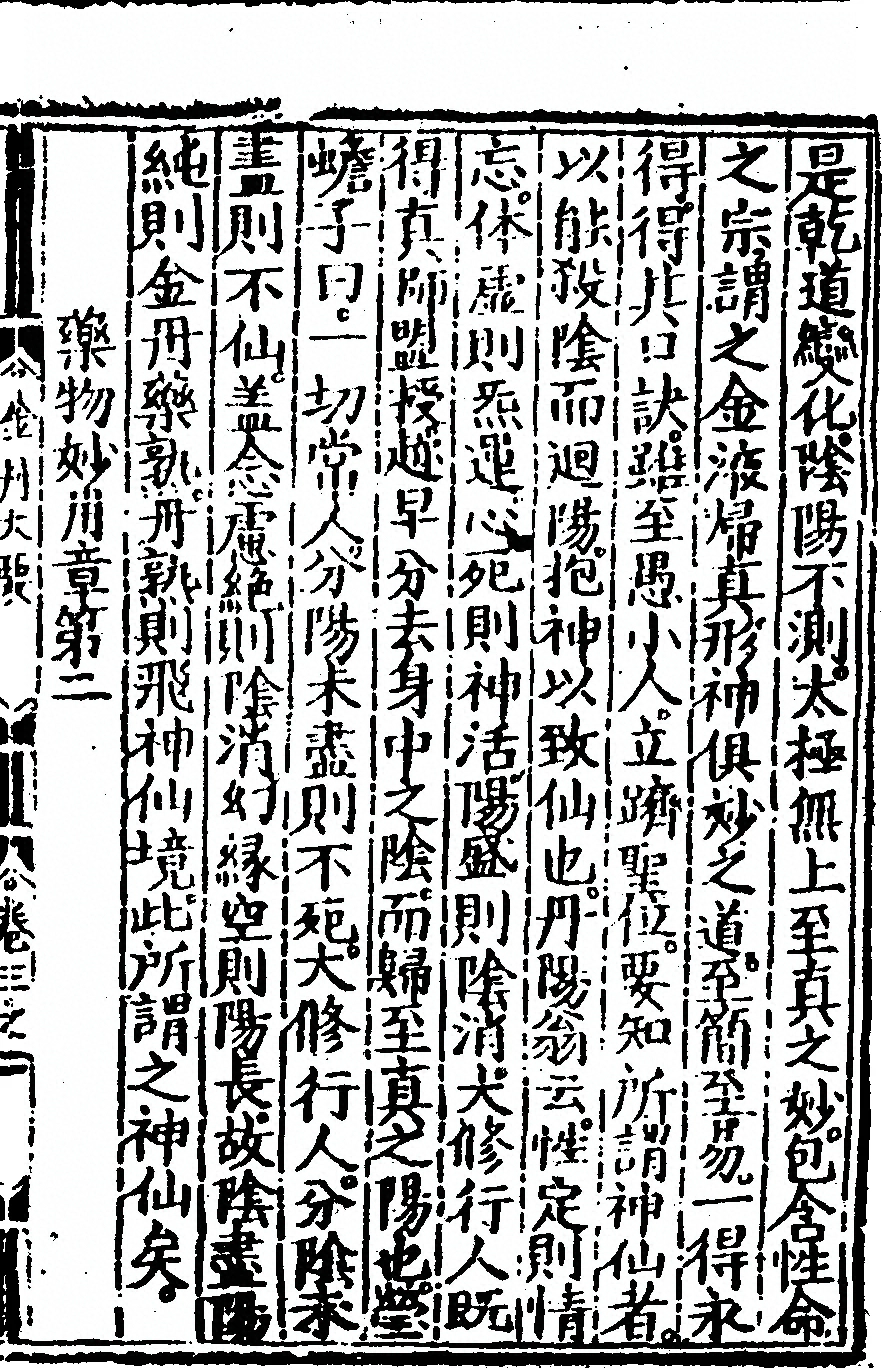 是乾道變化。陰陽不測。太極無上至真之妙。包含性命
之宗。謂之金液歸真。形神俱妙之道。至簡至易。一得永
得。得此口訣。雖至愚小人。立躋聖位。要知所謂神仙者。
以能殺陰而迴陽。抱神以致仙也。丹陽翁云。性定則情
忘。体虛則炁運。心死則神活。陽盛則陰消。大修行人既
得真師盟授。越早分去身中之陰。而歸至真之陽也。瑩
蟾子曰。一切常人。分陽未盡則不死。大修行人。分陰未
盡則不仙。蓋念慮絕則陰消。幻緣空則陽長。故陰盡陽
純則金丹藥熟。丹熟則飛神仙境。此所謂之神仙矣。
藥物妙用章第二
金丹大
卷三之